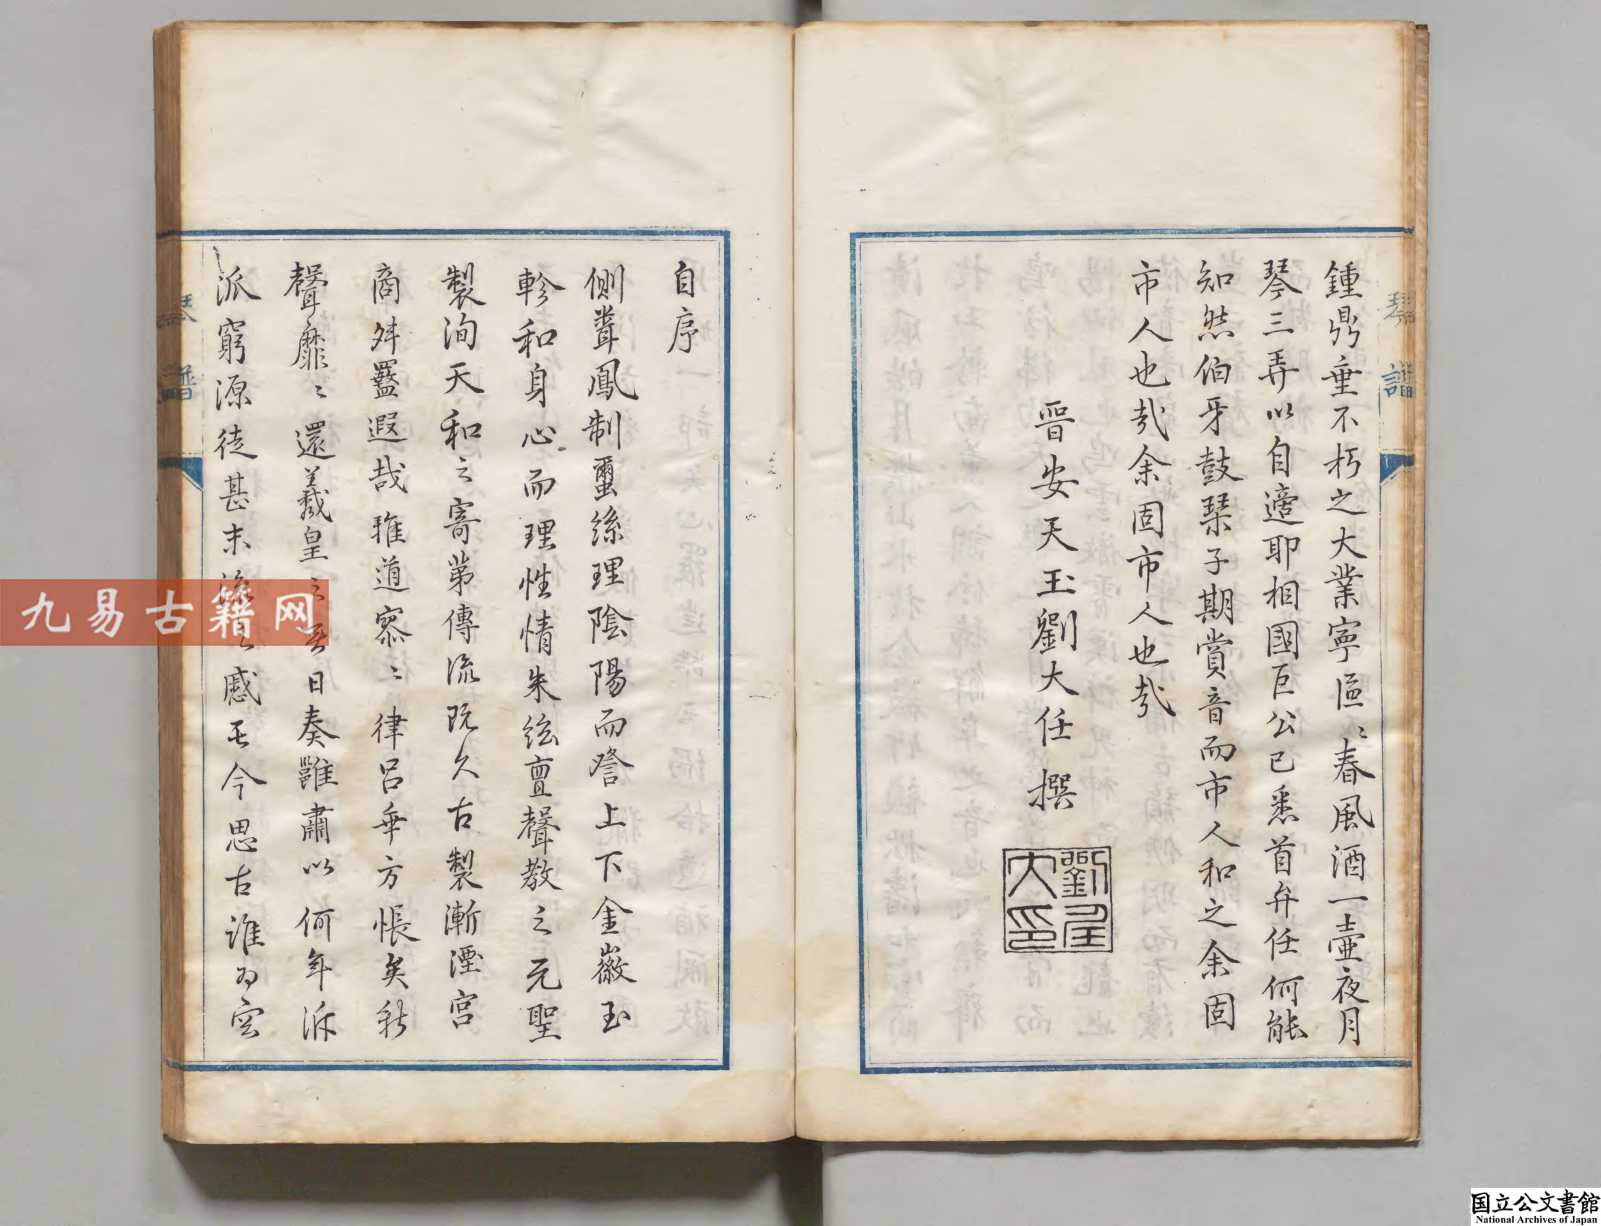 琴譜
鍾鼎垂不朽之大業寧區〻春風酒一壷夜月
琴三弄以自適耶相國巨公已悉首弁任何能
知然伯牙鼓琹子期賞音而市人和之余固
市人也㢤余固市人也㢤
晋安天玉劉大任撰
自序
側聋鳳制蠒絲理陰陽而詧上下金徽玉
軫和身心而理性情朱絃亶聲教之元聖
製洵天和之寄第傳流既久古製漸湮宫
商舛蠠遐哉雅道寥〻律吕乖方悵矣
聲靡〻還羲皇之日奏雖肅以何年泝
派窮源徒甚末感玉今思古誰为
琴譜
九易古籍网
国立公文書館
National Archives of Japan